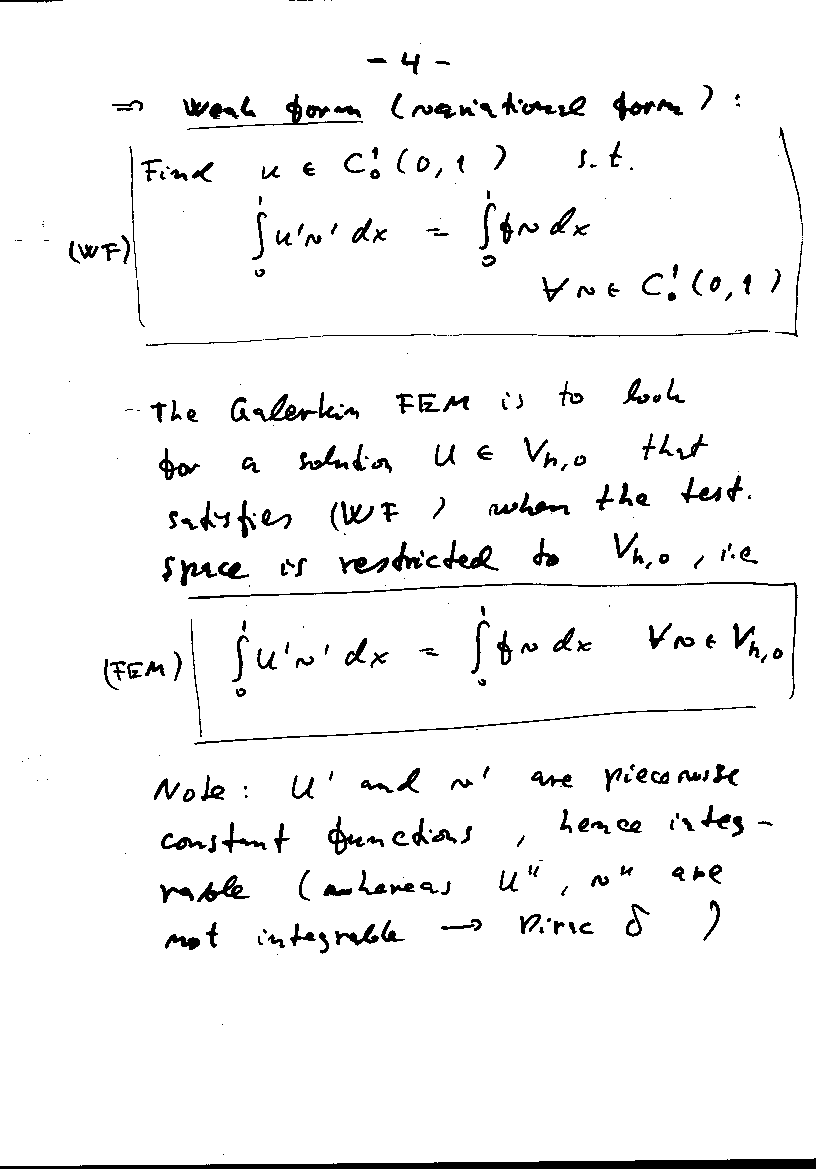 - 4 -
⇒ Weak form (variational form):
Find u ∈ C₀¹(0,1) s.t.
(WF) ∫₀¹ u'v' dx = ∫₀¹ fv dx
∀ v ∈ C₀¹(0,1)
The Galerkin FEM is to look
for a solution U ∈ V_{h,0} that
satisfies (WF) when the test.
space is restricted to V_{h,0}, i.e
(FEM) ∫₀¹ U'v' dx = ∫₀¹ fv dx ∀ v ∈ V_{h,0}
Note: U' and v' are piecewise
constant functions, hence integ-
rable (whereas U'', v'' are
not integrable → Dirac δ)